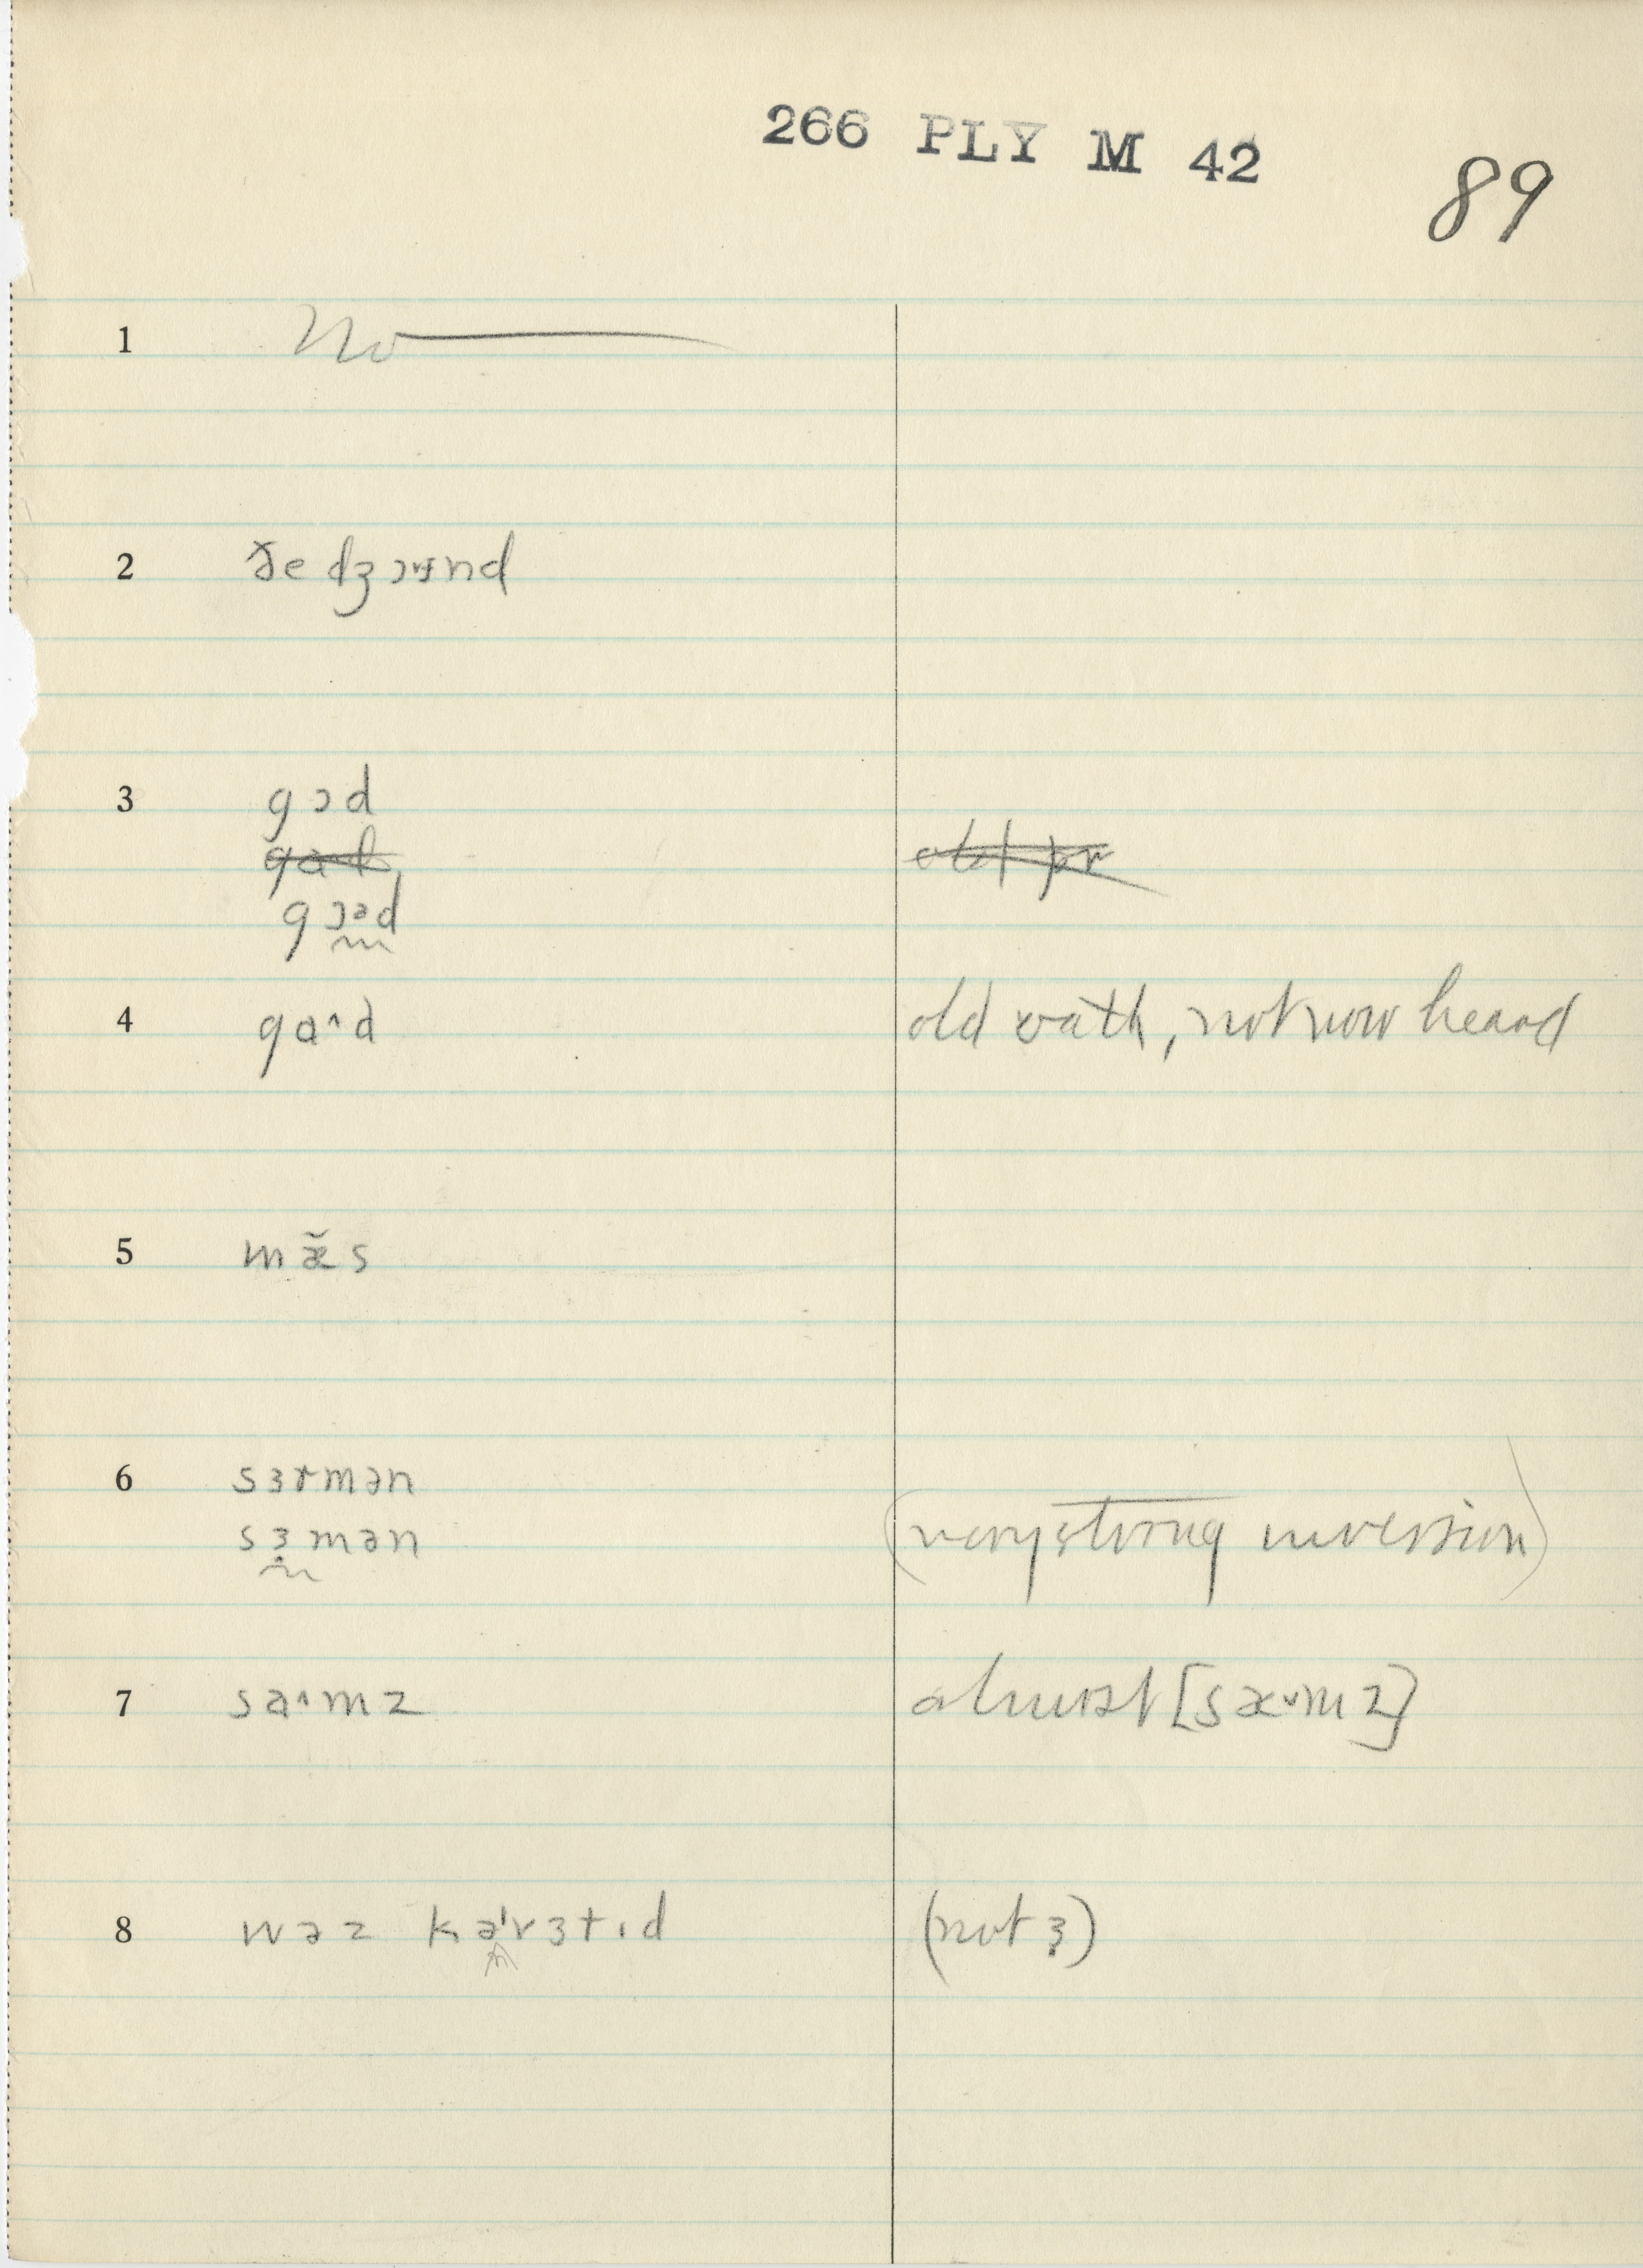 266 PLY M 42
89
1 No
2 ðe dʒɔɪnd
3 gɔd
gɔəd
4 ga˄d old oath, not now heard
5 mæ̆s
6 sɜrmən
sɜ̣mən (very strong inversion)
7 sa˄mz almost [sæ˅mz]
8 wəz kə'vɜtɪd (not ɜ̣)